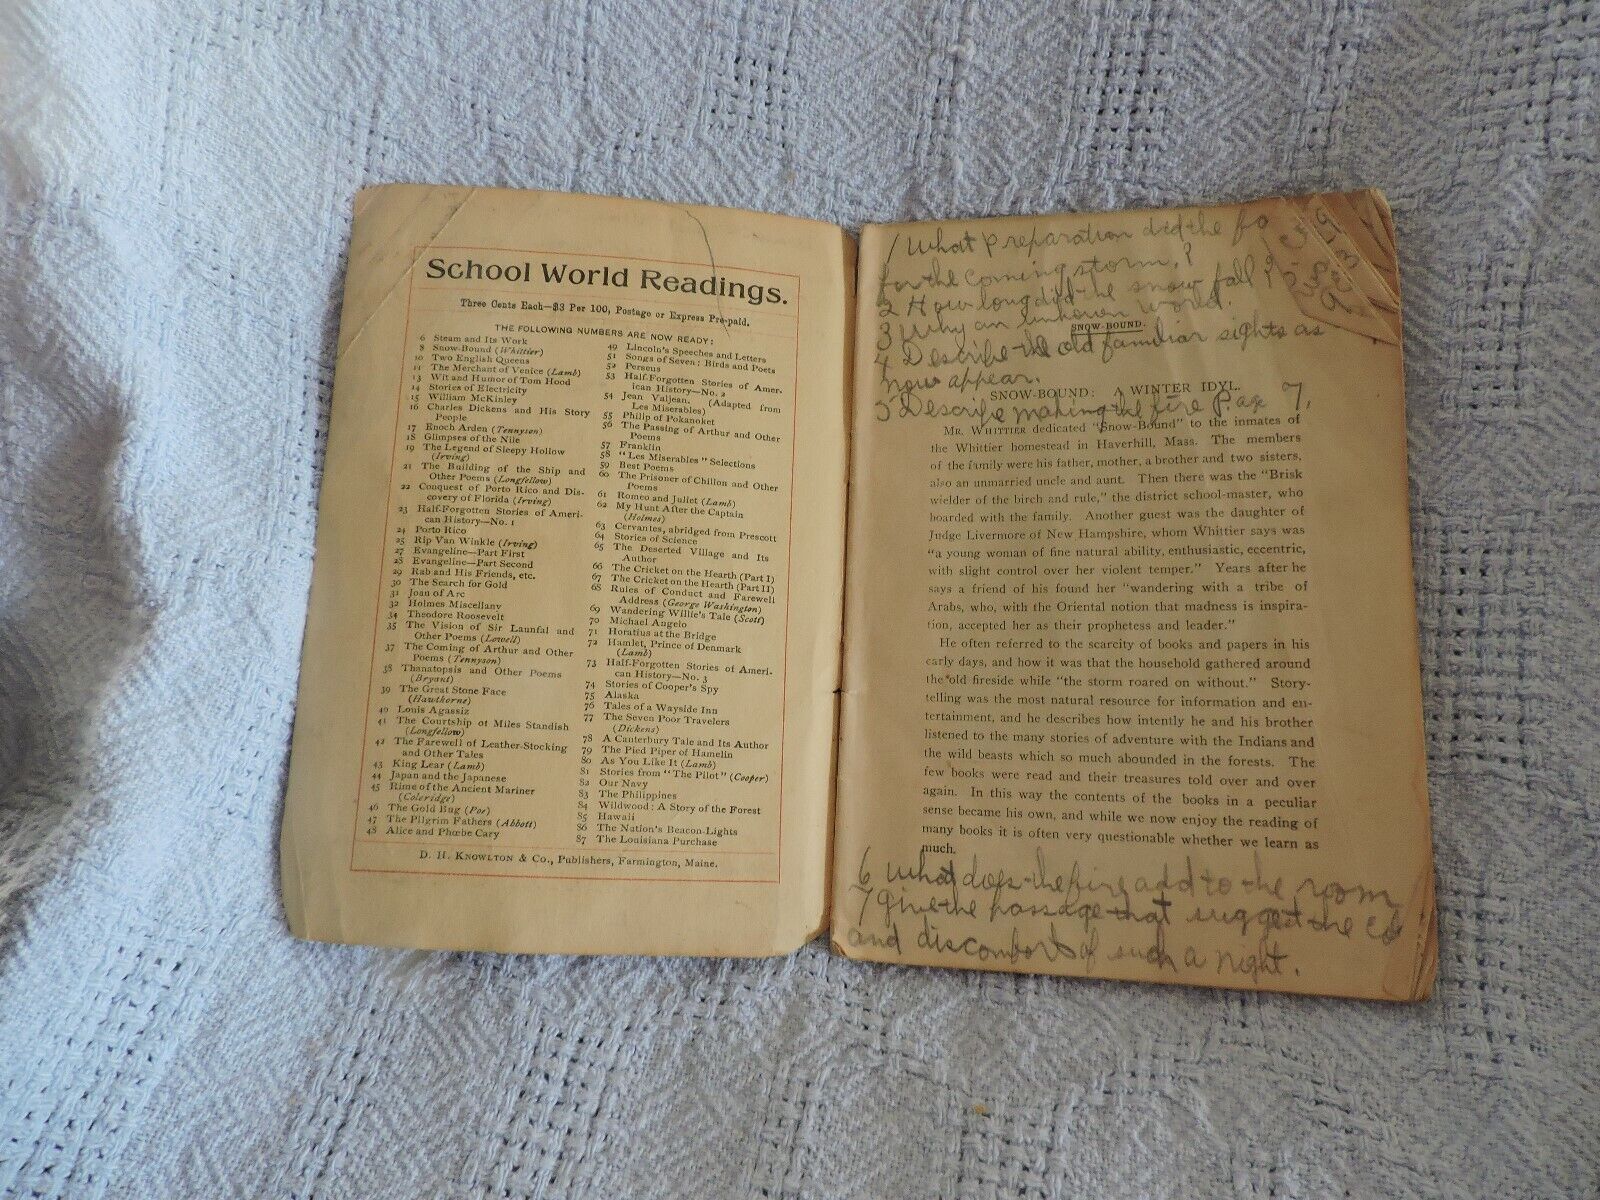 School World Readings.
Three Cents Each—$3 Per 100, Postage or Express Pre-paid.
THE FOLLOWING NUMBERS ARE NOW READY:
6 Steam and Its Work
8 Snow-Bound (Whittier)
10 Two English Queens
11 The Merchant of Venice (Lamb)
13 Wit and Humor of Tom Hood
14 Stories of Electricity
15 William McKinley
16 Charles Dickens and His Story
People
17 Enoch Arden (Tennyson)
18 Glimpses of the Nile
19 The Legend of Sleepy Hollow
(Irving)
21 The Building of the Ship and
Other Poems (Longfellow)
22 Conquest of Porto Rico and Dis-
covery of Florida (Irving)
23 Half-Forgotten Stories of Ameri-
can History—No. 1
24 Porto Rico
25 Rip Van Winkle (Irving)
27 Evangeline—Part First
28 Evangeline—Part Second
29 Rab and His Friends, etc.
30 The Search for Gold
31 Joan of Arc
32 Holmes Miscellany
34 Theodore Roosevelt
35 The Vision of Sir Launfal and
Other Poems (Lowell)
37 The Coming of Arthur and Other
Poems (Tennyson)
38 Thanatopsis and Other Poems
(Bryant)
39 The Great Stone Face
(Hawthorne)
40 Louis Agassiz
41 The Courtship of Miles Standish
(Longfellow)
42 The Farewell of Leather-Stocking
and Other Tales
43 King Lear (Lamb)
44 Japan and the Japanese
45 Rime of the Ancient Mariner
(Coleridge)
46 The Gold Bug (Poe)
47 The Pilgrim Fathers (Abbott)
48 Alice and Phœbe Cary
49 Lincoln's Speeches and Letters
51 Songs of Seven: Birds and Poets
52 Perseus
53 Half-Forgotten Stories of Amer-
ican History—No. 2
54 Jean Valjean. (Adapted from
Les Miserables)
55 Philip of Pokanoket
56 The Passing of Arthur and Other
Poems
57 Franklin
58 "Les Miserables" Selections
59 Best Poems
60 The Prisoner of Chillon and Other
Poems
61 Romeo and Juliet (Lamb)
62 My Hunt After the Captain
(Holmes)
63 Cervantes, abridged from Prescott
64 Stories of Science
65 The Deserted Village and Its
Author
66 The Cricket on the Hearth (Part I)
67 The Cricket on the Hearth (Part II)
68 Rules of Conduct and Farewell
Address (George Washington)
69 Wandering Willie's Tale (Scott)
70 Michael Angelo
71 Horatius at the Bridge
72 Hamlet, Prince of Denmark
(Lamb)
73 Half-Forgotten Stories of Ameri-
can History—No. 3
74 Stories of Cooper's Spy
75 Alaska
76 Tales of a Wayside Inn
77 The Seven Poor Travelers
(Dickens)
78 A Canterbury Tale and Its Author
79 The Pied Piper of Hamelin
80 As You Like It (Lamb)
81 Stories from "The Pilot" (Cooper)
82 Our Navy
83 The Philippines
84 Wildwood: A Story of the Forest
85 Hawaii
86 The Nation's Beacon-Lights
87 The Louisiana Purchase
D. H. KNOWLTON & CO., Publishers, Farmington, Maine.
1 What preparation did the fo
for the coming storm,?
2 How long did the snow fall?
3 Why an unknown world.
SNOW-BOUND.
4 Describe the old familiar sights as
now appear.
SNOW-BOUND: A WINTER IDYL.
5 Describe making the fire Page 7,
MR. WHITTIER dedicated "Snow-Bound" to the inmates of
the Whittier homestead in Haverhill, Mass. The members
of the family were his father, mother, a brother and two sisters,
also an unmarried uncle and aunt. Then there was the "Brisk
wielder of the birch and rule," the district school-master, who
boarded with the family. Another guest was the daughter of
Judge Livermore of New Hampshire, whom Whittier says was
"a young woman of fine natural ability, enthusiastic, eccentric,
with slight control over her violent temper." Years after he
says a friend of his found her "wandering with a tribe of
Arabs, who, with the Oriental notion that madness is inspira-
tion, accepted her as their prophetess and leader."
He often referred to the scarcity of books and papers in his
early days, and how it was that the household gathered around
the old fireside while "the storm roared on without." Story-
telling was the most natural resource for information and en-
tertainment, and he describes how intently he and his brother
listened to the many stories of adventure with the Indians and
the wild beasts which so much abounded in the forests. The
few books were read and their treasures told over and over
again. In this way the contents of the books in a peculiar
sense became his own, and while we now enjoy the reading of
many books it is often very questionable whether we learn as
much.
6 What does the fire add to the room
7 Give the passage that suggest the co
and discomfort of such a night.